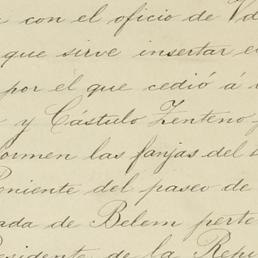 con el oficio de Vd
que sirve insertar e
por el que cedió á
y Cástulo Zenteno
ormen las fanjas del
eniente del paseo de
ada de Belem perte
residente de la Repu